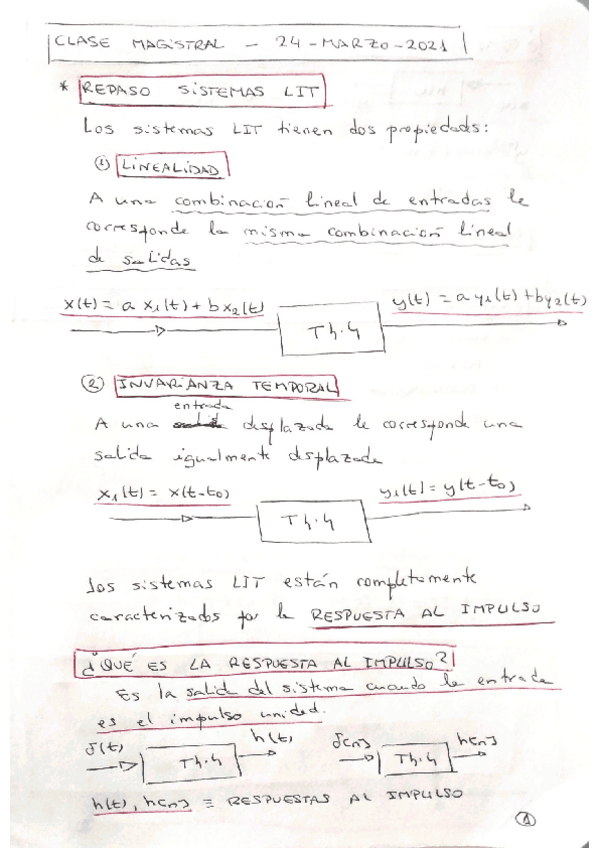 CLASE MAGISTRAL - 24-MARZO-2021
* REPASO SISTEMAS LIT
Los sistemas LIT tienen dos propiedades:
① LINEALIDAD
A una combinación lineal de entradas le
corresponde la misma combinación lineal
de salidas
x(t) = a x1(t) + b x2(t)
T{·}
y(t) = a y1(t) + b y2(t)
② INVARIANZA TEMPORAL
entrada
A una desplazada le corresponde una
salida igualmente desplazada
x1(t) = x(t-t0)
T{·}
y1(t) = y(t-t0)
Los sistemas LIT están completamente
caracterizados por la RESPUESTA AL IMPULSO
¿QUÉ ES LA RESPUESTA AL IMPULSO?
Es la salida del sistema cuando la entrada
es el impulso unidad.
δ(t)
T{·}
h(t)
δ[n]
T{·}
h[n]
h(t), h[n] ≡ RESPUESTAS AL IMPULSO
1